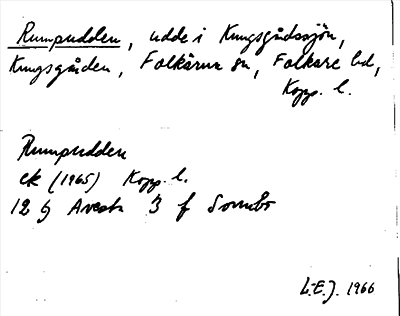 Rumpudden, udde i Kungsgådssjön,
Kungsgården, Folkärna sn, Folkare hd,
Kopp. l.
Rumpudden
ek (1965) Kopp. l.
12 G Avesta 3 f Sonnbo
L-E.J. 1966